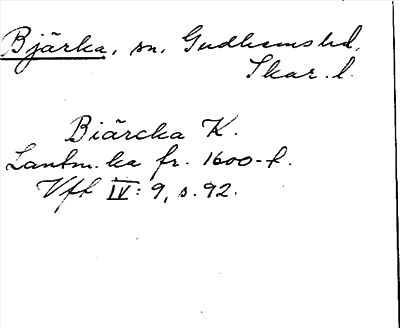 Bjärka, sn. Gudhems hd,
Skar. l.
Biärcka K.
Lantm. ka fr. 1600-t.
Vff IV: 9, s. 92.